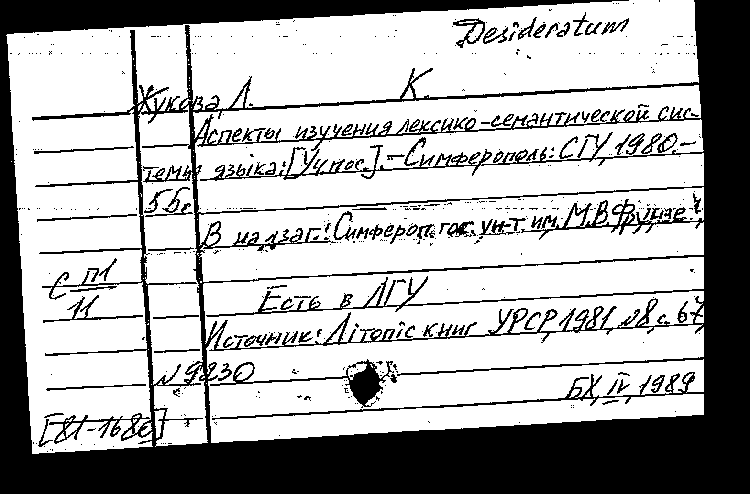 Desideratum
Жукова, Л. К.
Аспекты изучения лексико-семантической сис-
темы языка: [Уч. пос.]. - Симферополь: СГУ, 1980. -
55с.
В надзаг.: Симфероп. гос. ун-т им. М.В. Фрунзе
С П1/11
Есть в ЛГУ
Источник: Літопіс книг УРСР, 1981, №8, с. 67,
№9830
БХ, IV, 1989
[81-168е]